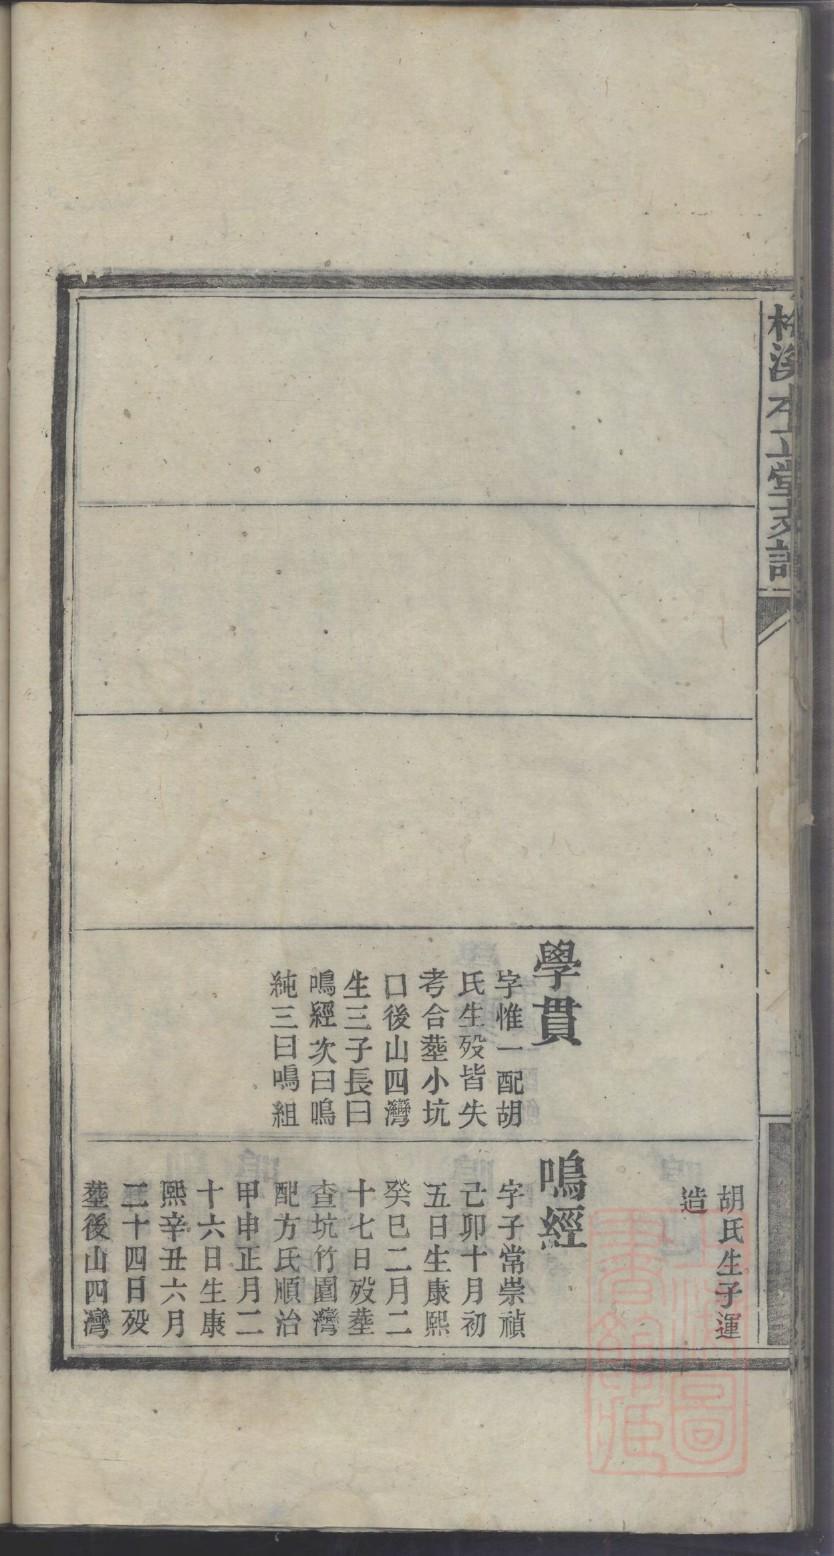 學貫
字惟一配胡
氏生殁皆失
考合塟小坑
口後山四灣
生三子長曰
鳴經次曰鳴
純三曰鳴組
胡氏生子運
造
鳴經
字子常崇禎
己卯十月初
五日生康熙
癸巳二月二
十七日殁塟
查坑竹園灣
配方氏順治
甲申正月二
十六日生康
熙辛丑六月
二十四日殁
塟後山四灣